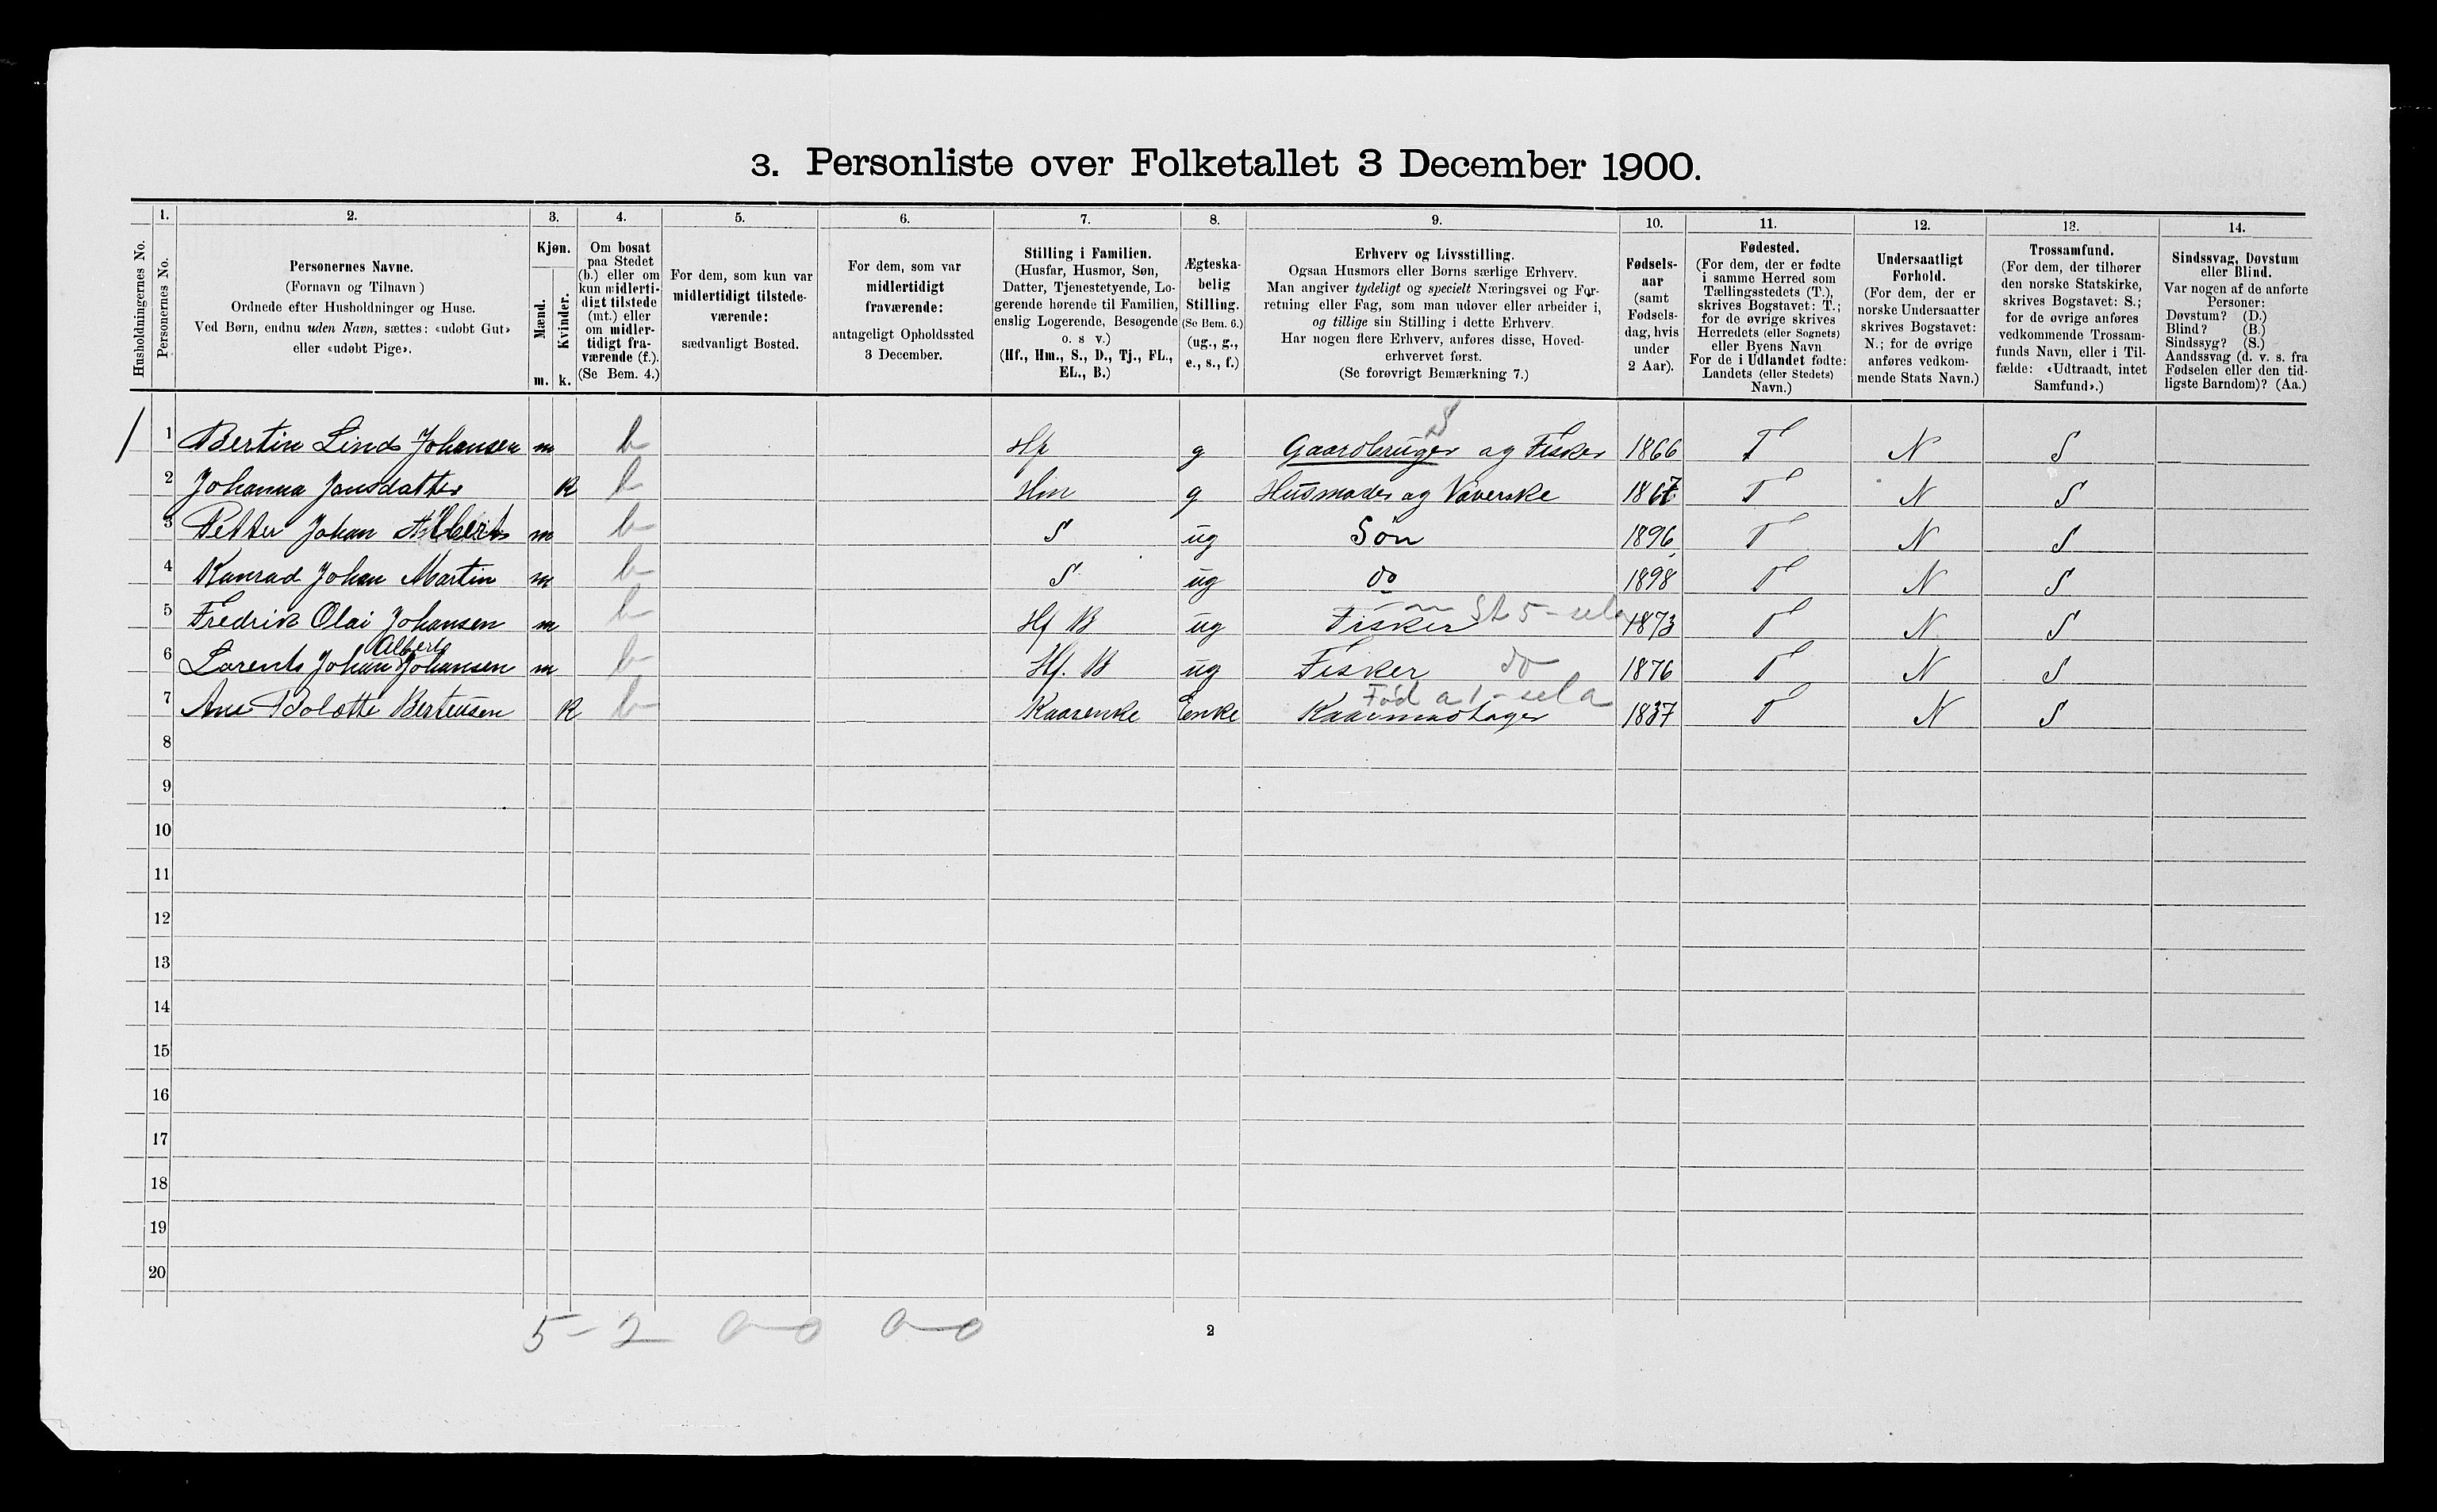 3. Personliste over Folketallet 3 December 1900.
1. 2. 3. 4. 5. 6. 7. 8. 9. 10. 11. 12. 13. 14.
Husholdningernes No.
Personernes No.
Personernes Navne.
(Fornavn og Tilnavn)
Ordnede efter Husholdninger og Huse.
Ved Børn, endnu uden Navn, sættes: «udøbt Gut»
eller «udøbt Pige».
Kjøn.
Mænd.
Kvinder.
m. k.
Om bosat
paa Stedet
(b.) eller om
kun midlerti-
digt tilstede
(mt.) eller
om midler-
tidigt fra-
værende (f.).
(Se Bem. 4.)
For dem, som kun var
midlertidigt tilstede-
værende:
sædvanligt Bosted.
For dem, som var
midlertidigt
fraværende:
antageligt Opholdssted
3 December.
Stilling i Familien.
(Husfar, Husmor, Søn,
Datter, Tjenestetyende, Lo-
gerende hørende til Familien,
enslig Logerende, Besøgende
o. s v.)
(Hf., Hm., S., D., Tj., FL.,
EL., B.)
Ægteska-
belig
Stilling.
(Se Bem. 6.)
(ug., g.,
e., s., f.)
Erhverv og Livsstilling.
Ogsaa Husmors eller Børns særlige Erhverv.
Man angiver tydeligt og specielt Næringsvei og For-
retning eller Fag, som man udøver eller arbeider i,
og tillige sin Stilling i dette Erhverv.
Har nogen flere Erhverv, anføres disse, Hoved-
erhvervet først.
(Se forøvrigt Bemærkning 7.)
Fødsels-
aar
(samt
Fødsels-
dag, hvis
under
2 Aar).
Fødested.
(For dem, der er fødte
i samme Herred som
Tællingsstedets (T.),
skrives Bogstavet: T.;
for de øvrige skrives
Herredets (eller Sognets)
eller Byens Navn
For de i Udlandet fødte:
Landets (eller Stedets)
Navn.)
Undersaatligt
Forhold.
(For dem, der er
norske Undersaatter
skrives Bogstavet:
N.; for de øvrige
anføres vedkom-
mende Stats Navn.)
Trossamfund.
(For dem, der tilhører
den norske Statskirke,
skrives Bogstavet: S.;
for de øvrige anføres
vedkommende Trossam-
funds Navn, eller i Til-
fælde: «Udtraadt, intet
Samfund».)
Sindssvag, Døvstum
eller Blind.
Var nogen af de anførte
Personer:
Døvstum? (D.)
Blind? (B.)
Sindssyg? (S.)
Aandssvag (d. v. s. fra
Fødselen eller den tid-
ligste Barndom)? (Aa.)
1 1 Bertin Linds Johansen m b Hf g Gaardbruger og Fisker 1866 T N S
2 Johanna Jansdatter K b Hm g Husmoder og Væverske 1867 T N S
3 Petter Johan Alberts m b S ug Søn 1896 T N S
4 Konrad Johan Martin m b S ug do 1898 T N S
5 Fredrik Olai Johansen m b Hf B ug Fisker 1873 T N S
Alberts
6 Lorents Johan Johansen m b Hf. B ug Fisker do 1876 T N S
7 Ane Bolotte Berteusen K b Kaarenke Enke Kaarmodtager 1837 T N S
8
9
10
11
12
13
14
15
16
17
18
19
20
5-2 0-0 0-0 2